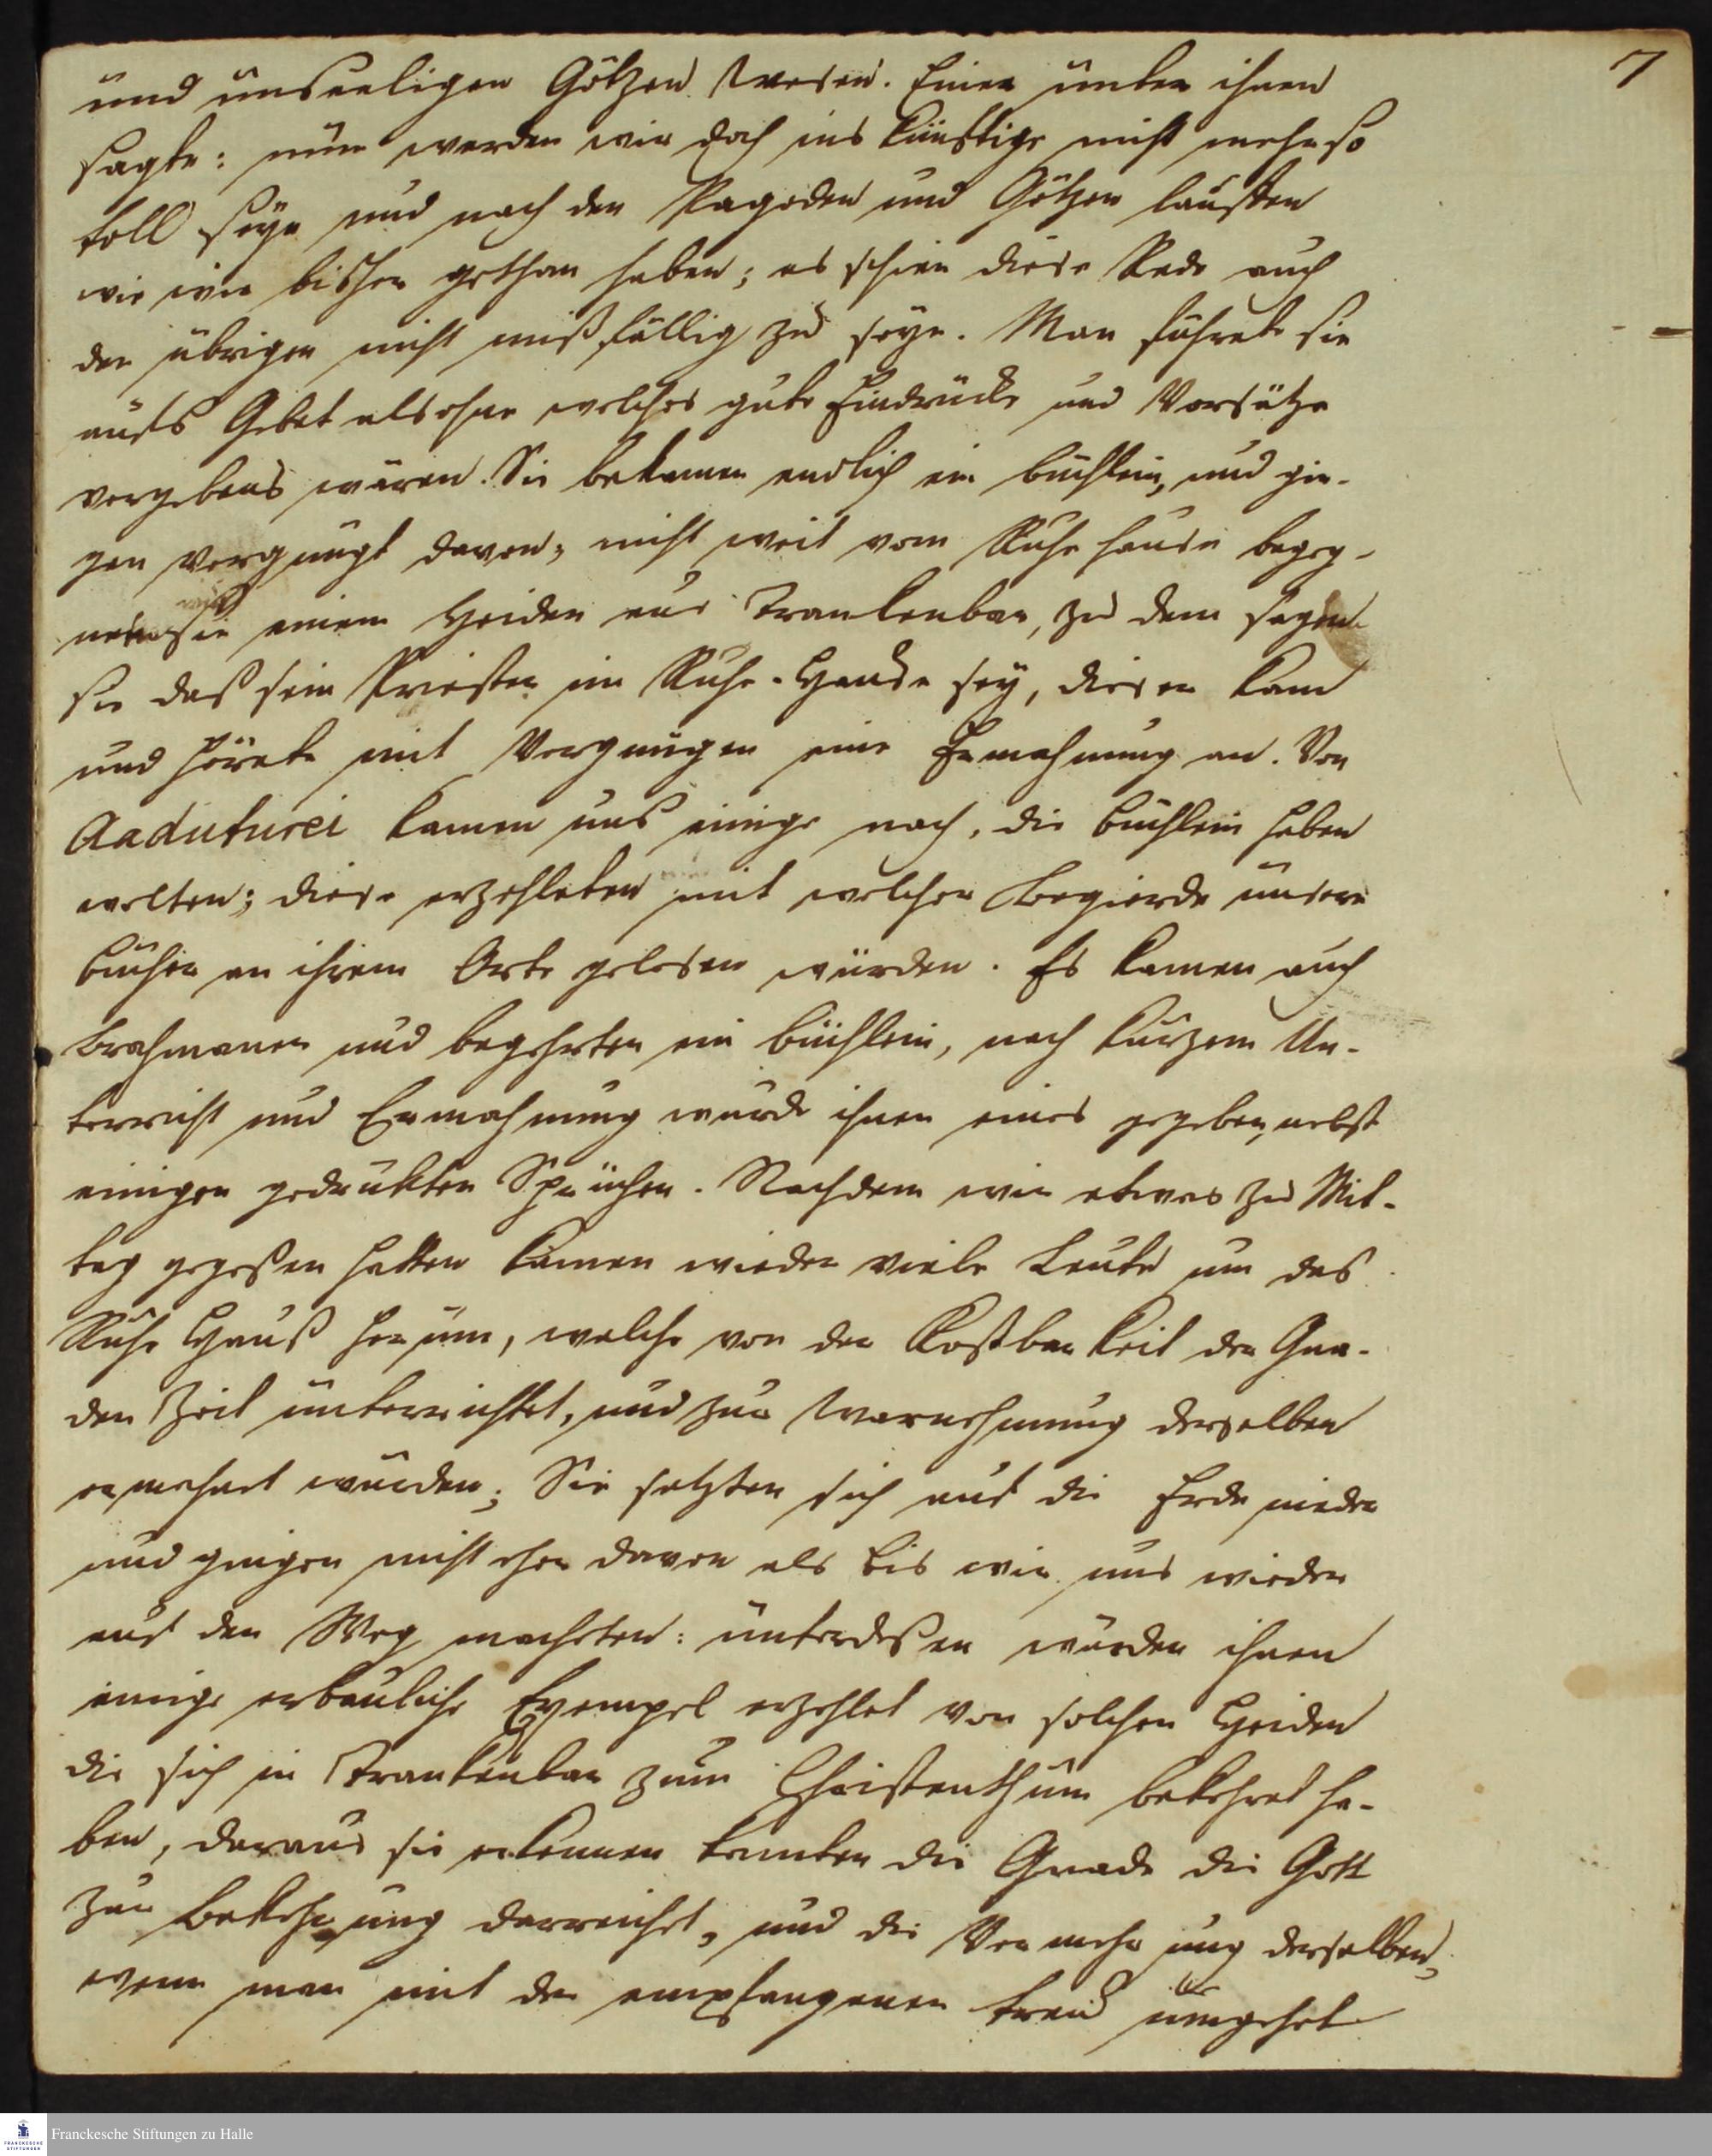 7
und unseeligen Götzen Wesen. Einer unter ihnen
sagte: nun werden wir doch ins künftige nicht mehr so
toll seyn und nach den Pagoden und Götzen lauffen
wie wir bißher gethan haben; es schien diese Rede auch
den übrigen nicht mißfällig zu seyn. Man führete sie
aufs Gebet als ohne welches gute Eindrücke und Vorsätze
vergebens wären. Sie bekamen endlich ein büchlein, und gin-
gen vergnügt davon; nicht weit vom Ruhe hause begeg-
neten sie einem Heiden aus Trankenbar, zu dem sagten
sie daß sein Priester im Ruhe-Hause sey, dieser kam
und hörete mit Vergnügen eine Ermahnung an. Von
Aaduturei kamen uns einige nach, die büchlein haben
wolten; diese erzehleten mit welcher Begierde unsere
bücher an ihrem Orte gelesen würden. Es kamen auch
Brahmaner und begehrten ein büchlein, nach kurzem Un-
terricht und Ermahnung wurde ihnen eines gegeben, nebst
einigen gedrukten Sprüchen. Nachdem wir etwas zu Mit-
tag gegessen hatten kamen wieder viele Leute um das
Ruhe Hauß herum, welche von der Kostbarkeit der Gna-
den Zeit unterrichtet, und zur Warnehmung derselben
ermahnt wurden; Sie setzten sich auf die Erde nieder
und gingen nicht eher davon als bis wir uns wieder
auf den Weg machten: unterdessen wurden ihnen
einige erbauliche Exempel erzehlet von solchen Heiden
die sich in Trankenbar zum Christenthum bekehret ha-
ben, daraus sie erkennen konten die Gnade die Gott
zur Bekehrung darreichet, und die Vermehrung derselben,
wenn man mit der empfangenen treu umgehet
Franckesche Stiftungen zu Halle
FRANCKESCHE STIFTUNGEN